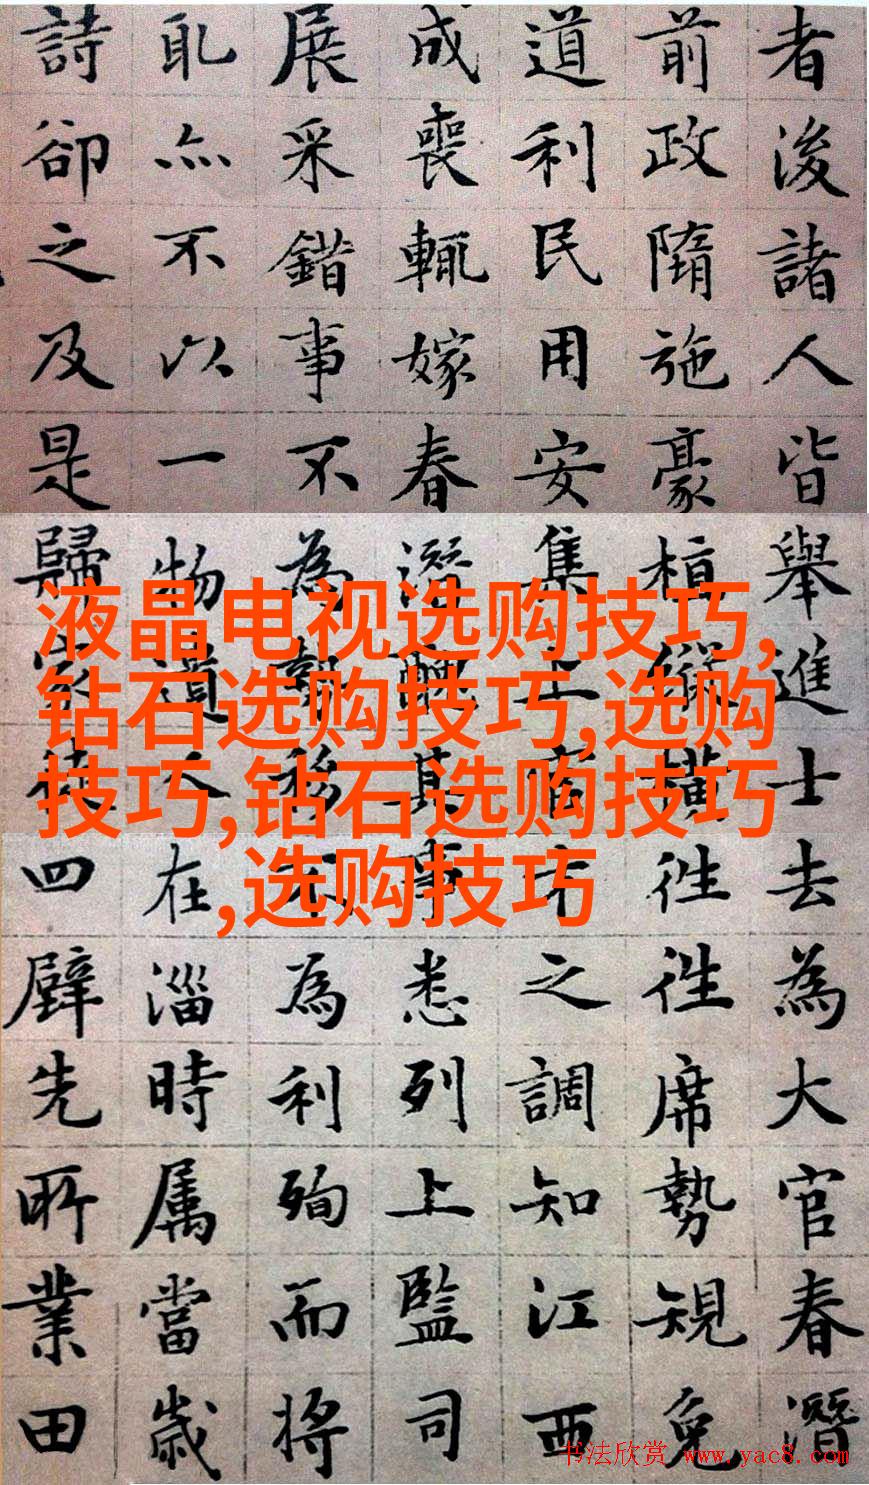 者後諸人皆舉進士去為大官春潛
前政隋施豪植縱橫徃徃席勢規免
道利民用安集上官之調知江西
成喪輒嫁春潛醜其事悉列上監司
展采錯事不為移不為利殉而將
耴亦不以一物遺人在淄時属當歲
詩卻之及是歸家徒四壁先所業田
液晶电视选购技巧,
钻石选购技巧,选购
技巧,钻石选购技巧
,选购技巧
书法欣赏 www.yac8.com